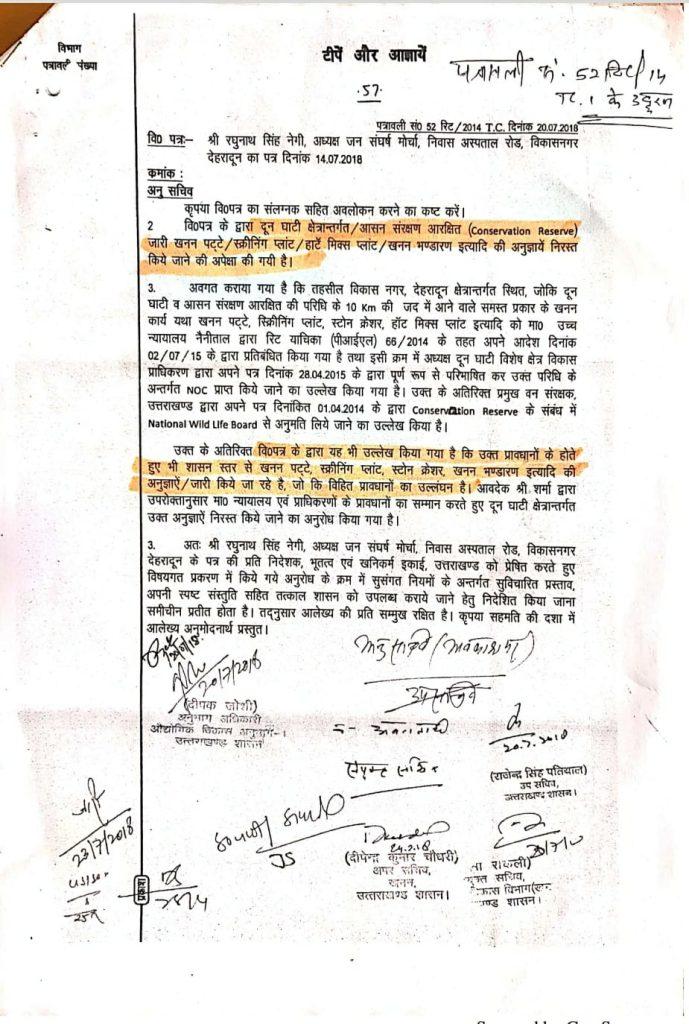 विभाग
पत्रावली संख्या
टीपें और आज्ञायें
पत्रावली सं. 52 रिट/14
T.C. 1 के उद्धरण
.57.
पत्रावली सं0 52 रिट/2014 T.C. दिनांक 20.07.2018
वि0 पत्रः– श्री रघुनाथ सिंह नेगी, अध्यक्ष जन संघर्ष मोर्चा, निवास अस्पताल रोड, विकासनगर
देहरादून का पत्र दिनांक 14.07.2018
कमांक :
अनु सचिव
कृपया वि0पत्र का संलग्नक सहित अवलोकन करने का कष्ट करें।
2 वि0पत्र के द्वारा दून घाटी क्षेत्रान्तर्गत/आसन संरक्षण आरक्षित (Conservation Reserve)
जारी खनन पट्टे/स्क्रीनिंग प्लांट/हार्टे मिक्स प्लांट/खनन भण्डारण इत्यादि की अनुज्ञायें निरस्त
किये जाने की अपेक्षा की गयी है।
3. अवगत कराया गया है कि तहसील विकास नगर, देहरादून क्षेत्रान्तर्गत स्थित, जोकि दून
घाटी व आसन संरक्षण आरक्षित की परिधि के 10 Km की जद में आने वाले समस्त प्रकार के खनन
कार्य यथा खनन पट्टे, स्क्रिीनिंग प्लांट, स्टोन क्रेशर, हॉट मिक्स प्लांट इत्यादि को मा0 उच्च
न्यायालय नैनीताल द्वारा रिट याचिका (पीआईएल) 66/2014 के तहत अपने आदेश दिनांक
02/07/15 के द्वारा प्रतिबंधित किया गया है तथा इसी क्रम में अध्यक्ष दून घाटी विशेष क्षेत्र विकास
प्राधिकरण द्वारा अपने पत्र दिनांक 28.04.2015 के द्वारा पूर्ण रूप से परिभाषित कर उक्त परिधि के
अन्तर्गत NOC प्राप्त किये जाने का उल्लेख किया गया है। उक्त के अतिरिक्त प्रमुख वन संरक्षक,
उत्तराखण्ड द्वारा अपने पत्र दिनांकित 01.04.2014 के द्वारा Conservation Reserve के संबंध में
National Wild Life Board से अनुमति लिये जाने का उल्लेख किया है।
उक्त के अतिरिक्त वि0पत्र के द्वारा यह भी उल्लेख किया गया है कि उक्त प्रावधानों के होते
हुए भी शासन स्तर से खनन पट्टे, स्क्रीनिंग प्लांट, स्टोन क्रेशर, खनन भण्डारण इत्यादि की
अनुज्ञाऐं/जारी किये जा रहे है, जो कि विहित प्रावधानों का उल्लंघन है। आवदेक श्री शर्मा द्वारा
उपरोक्तानुसार मा0 न्यायालय एवं प्राधिकरणों के प्रावधानों का सम्मान करते हुए दून घाटी क्षेत्रान्तर्गत
उक्त अनुज्ञाऐं निरस्त किये जाने का अनुरोध किया गया है।
3. अतः श्री रघुनाथ सिंह नेगी, अध्यक्ष जन संघर्ष मोर्चा, निवास अस्पताल रोड, विकासनगर
देहरादून के पत्र की प्रति निदेशक, भूतत्व एवं खनिकर्म इकाई, उत्तराखण्ड को प्रेषित करते हुए
विषयगत प्रकरण में किये गये अनुरोध के क्रम में सुसंगत नियमों के अन्तर्गत सुविचारित प्रस्ताव,
अपनी स्पष्ट संस्तुति सहित तत्काल शासन को उपलब्ध कराये जाने हेतु निदेशित किया जाना
समीचीन प्रतीत होता है। तद्नुसार आलेख्य की प्रति सम्मुख रक्षित है। कृपया सहमति की दशा में
आलेख्य अनुमोदनार्थ प्रस्तुत।
अनु सचिव (अवकाश पर)
20/7/2018
उप सचिव
(दीपक जोशी)
अनुभाग अधिकारी
औद्योगिक विकास अनुभाग–1
उत्तराखण्ड शासन
20.7.2018
(राजेन्द्र सिंह पतियाल)
उप सचिव,
उत्तराखण्ड शासन।
संयुक्त सचिव
23/7/2018
JS
24.7.18
(दीपेन्द्र कुमार चौधरी)
अपर सचिव,
खनन,
उत्तराखण्ड शासन।
सचिव,
विभाग
शासन।